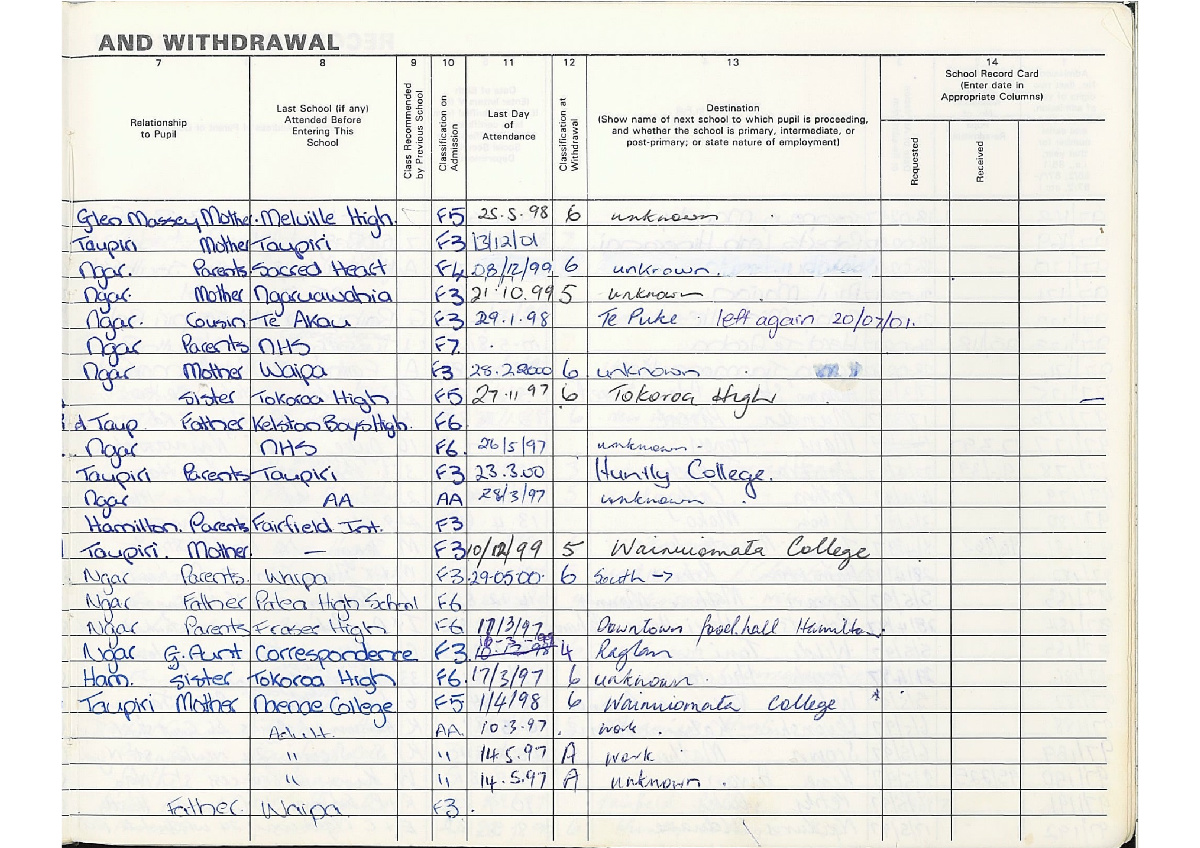 AND WITHDRAWAL
7 8 9 10 11 12 13 14
Relationship to Pupil
Last School (if any) Attended Before Entering This School
Class Recommended by Previous School
Classification on Admission
Last Day of Attendance
Classification at Withdrawal
Destination
(Show name of next school to which pupil is proceeding, and whether the school is primary, intermediate, or post-primary; or state nature of employment)
School Record Card (Enter date in Appropriate Columns)
Requested
Received
Glen Massey Mother. Melville High. F5 25.5.98 6 unknown
Taupiri Mother Taupiri F3 13/12/01
Ngar. Parents Sacred Heart F4 08/12/99 6 unknown.
Ngar. Mother Ngaruawahia F3 21.10.99 5 unknown
Ngar. Cousin Te Akau F3 29.1.98 Te Puke left again 20/07/01.
Ngar Parents NHS F7.
Ngar Mother Waipa F3 28.2.2000 6 unknown
Sister Tokoroa High F5 27.11.97 6 Tokoroa High
d Taup. Father Kelston Boys High. F6
Ngar NHS F6. 26/5/97 unknown.
Taupiri Parents Taupiri F3 23.3.00 Huntly College.
Ngar AA AA 28/3/97 unknown
Hamilton. Parents Fairfield Int. F3
Taupiri. Mother. — F3 10/12/99 5 Wainuiomata College
Ngar Parents. Waipa F3 29.05.00. 6 South ->
Ngar Father Patea High School F6
Ngar Parents Fraser High F6 17/3/97 Downtown food hall Hamilton.
Ngar G. Aunt Correspondence F3 4 Raglan
Ham. Sister Tokoroa High F6 17/3/97 6 unknown.
Taupiri Mother Menae College F5 1/4/98 6 Wainuiomata College
Adult. AA. 10.3.97 . work.
" " 14.5.97 A work
" " 14.5.97 A unknown.
Father. Waipa. F3.